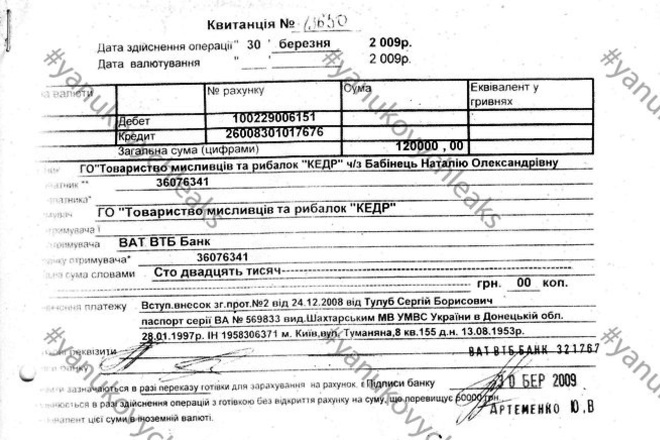 Квитанція №
Дата здійснення операції " 30 ' березня 2 009р.
Дата валютування " ' 2 009р.
валюти № рахунку Сума Еквівалент у гривнях
Дебет 100229006151
Кредит 26008301017676
Загальна сума (цифрами) 120000 , 00
ГО"Товариство мисливців та рибалок "КЕДР" ч/з Бабінець Наталію Олександрівну
36076341
ГО "Товариство мисливців та рибалок "КЕДР"
отримувача ВАТ ВТБ Банк
отримувача* 36076341
сума словами Сто двадцять тисяч
грн. 00 коп.
платежу Вступ.внесок зг.прот.№2 від 24.12.2008 від Тулуб Сергій Борисович
паспорт серії ВА № 569833 вид.Шахтарським МВ УМВС України в Донецькій обл.
28.01.1997р. ІН 1958306371 м. Київ,вул. Туманяна,8 кв.155 д.н. 13.08.1953р.
реквізити ВАТ ВТБ БАНК 321767
зазначаються в разі переказу готівки для зарахування на рахунок. Підписи банку 30 БЕР 2009
в разі здійснення операцій з готівкою без відкриття рахунку на суму, що перевищує 50000 грн
цієї суми в іноземній валюті. АРТЕМЕНКО Ю.В
#yanukovychleaks
#yanukovychleaks